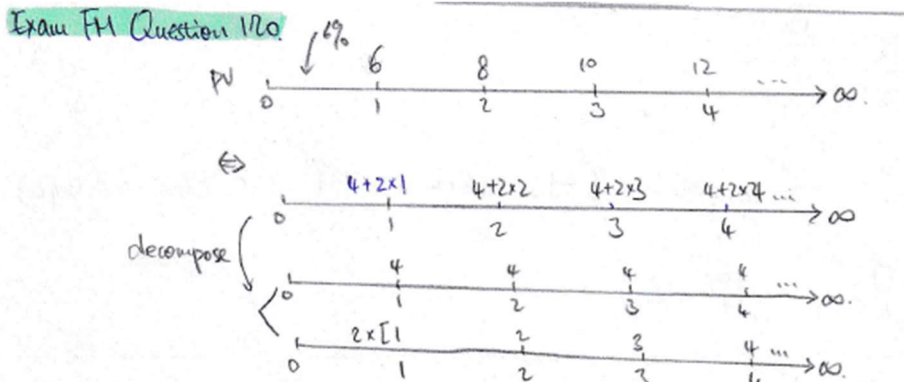 Exam FM Question 120.
6%
PV 6 8 10 12 ...
0 1 2 3 4 ∞.
⇔
4+2×1 4+2×2 4+2×3 4+2×4 ...
0 1 2 3 4 ∞
decompose
4 4 4 4 ...
0 1 2 3 4 ∞.
2×[1 2 3 4 ...
0 1 2 3 4 ∞.